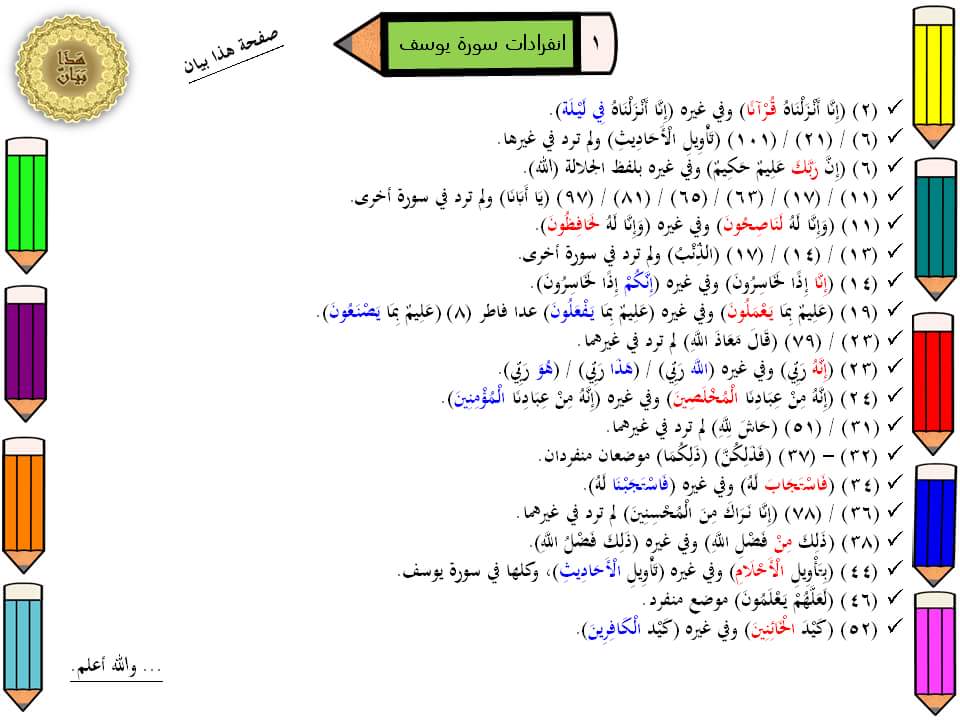 انفرادات سورة يوسف ١
صفحة هذا بيان
هَذَا بَيَانٌ
(٢) (إِنَّا أَنْزَلْنَاهُ قُرْآنًا) وفي غيره (إِنَّا أَنْزَلْنَاهُ فِي لَيْلَة).
(٦) / (٢١) / (١٠١) (تَأْوِيلِ الْأَحَادِيثِ) ولم ترد في غيرها.
(٦) (إِنَّ رَبَّكَ عَلِيمٌ حَكِيمٌ) وفي غيره بلفظ الجلالة (الله).
(١١) / (١٧) / (٦٣) / (٦٥) / (٨١) / (٩٧) (يَا أَبَانَا) ولم ترد في سورة أخرى.
(١١) (وَإِنَّا لَهُ لَنَاصِحُونَ) وفي غيره (وَإِنَّا لَهُ لَحَافِظُونَ).
(١٣) / (١٤) / (١٧) (الذِّئْبُ) ولم ترد في سورة أخرى.
(١٤) (إِنَّا إِذًا لَخَاسِرُونَ) وفي غيره (إِنَّكُمْ إِذًا لَخَاسِرُونَ).
(١٩) (عَلِيمٌ بِمَا يَعْمَلُونَ) وفي غيره (عَلِيمٌ بِمَا يَفْعَلُونَ) عدا فاطر (٨) (عَلِيمٌ بِمَا يَصْنَعُونَ).
(٢٣) / (٧٩) (قَالَ مَعَاذَ اللَّهِ) لم ترد في غيرهما.
(٢٣) (إِنَّهُ رَبِّي) وفي غيره (اللَّهُ رَبِّي) / (هَذَا رَبِّي) / (هُوَ رَبِّي).
(٢٤) (إِنَّهُ مِنْ عِبَادِنَا الْمُخْلَصِينَ) وفي غيره (إِنَّهُ مِنْ عِبَادِنَا الْمُؤْمِنِينَ).
(٣١) / (٥١) (حَاشَ لِلَّهِ) لم ترد في غيرهما.
(٣٢) – (٣٧) (فَذَلِكُنَّ) (ذَلِكُمَا) موضعان منفردان.
(٣٤) (فَاسْتَجَابَ لَهُ) وفي غيره (فَاسْتَجَبْنَا لَهُ).
(٣٦) / (٧٨) (إِنَّا نَرَاكَ مِنَ الْمُحْسِنِينَ) لم ترد في غيرهما.
(٣٨) (ذَلِكَ مِنْ فَضْلِ اللَّهِ) وفي غيره (ذَلِكَ فَضْلُ اللَّهِ).
(٤٤) (بِتَأْوِيلِ الْأَحْلَامِ) وفي غيره (تَأْوِيلِ الْأَحَادِيثِ)، وكلها في سورة يوسف.
(٤٦) (لَعَلَّهُمْ يَعْلَمُونَ) موضع منفرد.
(٥٢) (كَيْدَ الْخَائِنِينَ) وفي غيره (كَيْد الْكَافِرِينَ).
... والله أعلم.